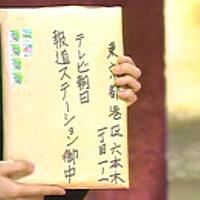 東京都港区六本木
一丁目一ノ一
テレビ朝日
報道ステーション御中